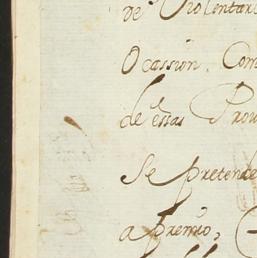 de Violentar
Ocassion. Com
de essas Prov
Se pretende
a premio,